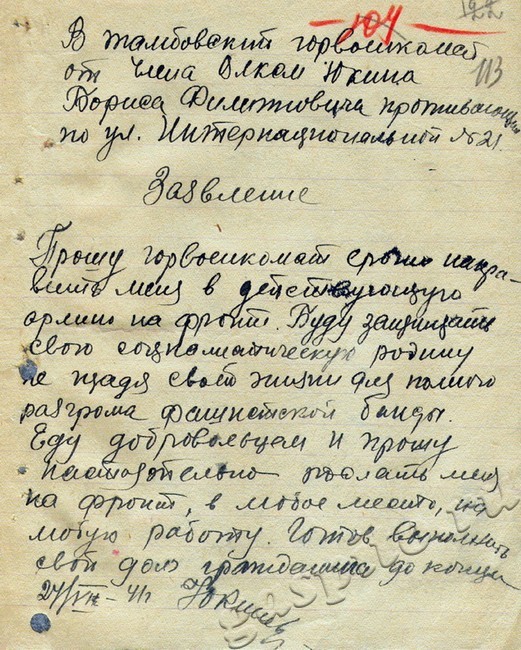 -104-
122
113
В тамбовский горвоенкомат
от члена ВЛКСМ Юкина
Бориса Дмитровича проживающий
по ул. Интернациональной №21.
Заявление
Прошу горвоенкомат срочно напра-
вить меня в действующую
армию на фронт. Буду защищать
свою социалистическую родину
не щадя своей жизни для полного
разгрома фашистской банды.
Еду добровольцем и прошу
настоятельно послать меня
на фронт, в любое место, на
любую работу. Готов выполнить
свой долг гражданина до конца
Юкин